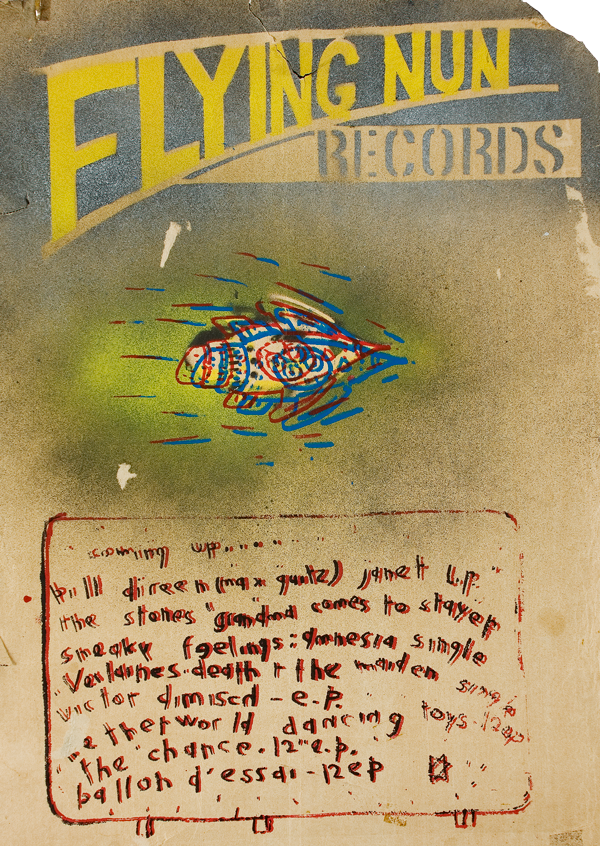 FLYING NUN
RECORDS
coming up.....
bill direen (max quitz) janet l.p.
the stones "grandma comes to stayep
sneaky feelings: amnesia single
"Verlaines-death + the maiden single
victor dimised - e.p.
"e therworld dancing toys. 12ep
the chance. 12" e.p.
ballon d'essai - 12ep